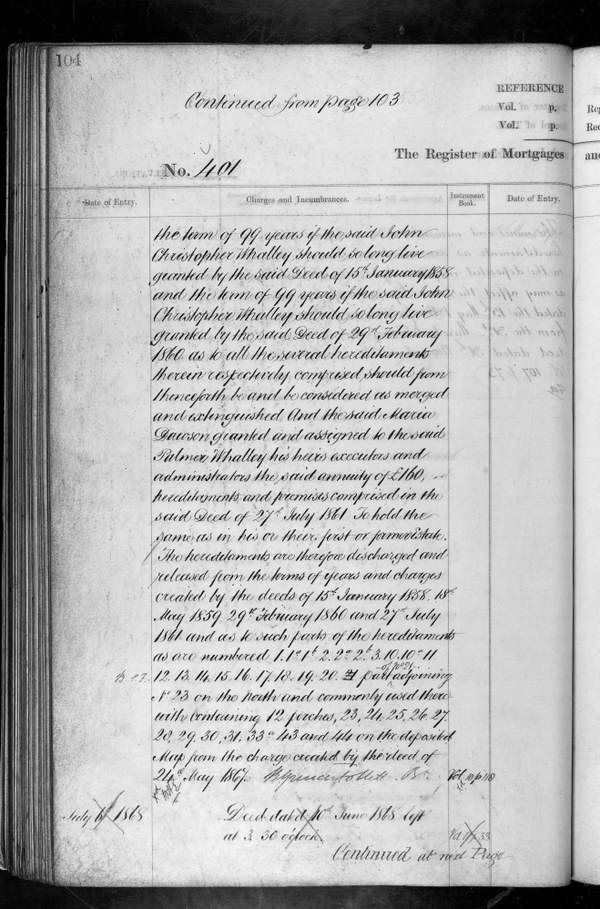 104
Continued from page 103
REFERENCE
Vol. p.
Vol. p.
The Register of Mortgages
No. 401
Date of Entry.
Charges and Incumbrances.
Instrument Book.
Date of Entry.
the term of 99 years if the said John
Christopher Whalley should so long live
granted by the said Deed of 15th January 1858
and the term of 99 years if the said John
Christopher Whalley should so long live
granted by the said Deed of 29th February
1860 as to all the several hereditaments
therein respectively comprised should from
thenceforth be and be considered as merged
and extinguished And the said Maria
Dawson granted and assigned to the said
Palmer Whalley his heirs executors and
administrators the said annuity of £160,
hereditaments and premises comprised in the
said Deed of 27th July 1861 To hold the
same as in his or their first or former Estate.
The hereditaments are therefore discharged and
released from the terms of years and charges
created by the deeds of 15th January 1858. 18th
May 1859. 29th February 1860 and 27th July
1861 and as to such parts of the hereditaments
as are numbered 1. 1a 1b 2. 2a 2b 3. 10. 10a 11
12. 13. 14. 15. 16. 17. 18. 19. 20. 21 part of No 21 adjoining
No 23 on the North and commonly used there
with containing 12 perches, 23, 24, 25, 26, 27.
28, 29. 30, 31. 33a 43 and 44 on the deposited
Map from the charge created by the deed of
24th May 1867. Vol 10 p 118
July 6th 1868
Deed dated 10th June 1868 left
at 3. 30 o'clock
Continued at next Page
an